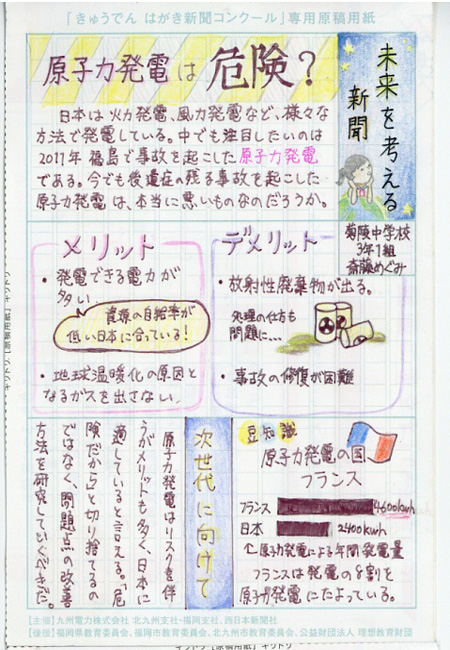 「きゅうでん はがき新聞コンクール」専用原稿用紙
未来を考える
新聞
菊陵中学校
3年1組
斎藤めぐみ
原子力発電は危険？
日本は火力発電、風力発電など、様々な
方法で発電している。中でも注目したいのは
2011年福島で事故を起こした原子力発電
である。今でも後遺症の残る事故を起こした
原子力発電は、本当に悪いものなのだろうか。
メリット
・発電できる電力が
多い
資源の自給率が
低い日本に合っている！
・地球温暖化の原因と
なるガスを出さない
デメリット
・放射性廃棄物が出る。
処理の仕方も
問題に…
・事故の修復が困難
豆知識
原子力発電の国
フランス
フランス 4600kwh
日本 2400kwh
↑原子力発電による年間発電量
フランスは発電の8割を
原子力発電にたよっている。
次世代に向けて
原子力発電はリスクを伴
うがメリットも多く、日本に
適していると言える。「危
険だから」と切り捨てるの
ではなく、問題点の改善
方法を研究していくべきだ。
【主催】九州電力株式会社 北九州支社・福岡支社、西日本新聞社
【後援】福岡県教育委員会、福岡市教育委員会、北九州市教育委員会、公益財団法人 理想教育財団
キリトリ【原稿用紙】キリトリ